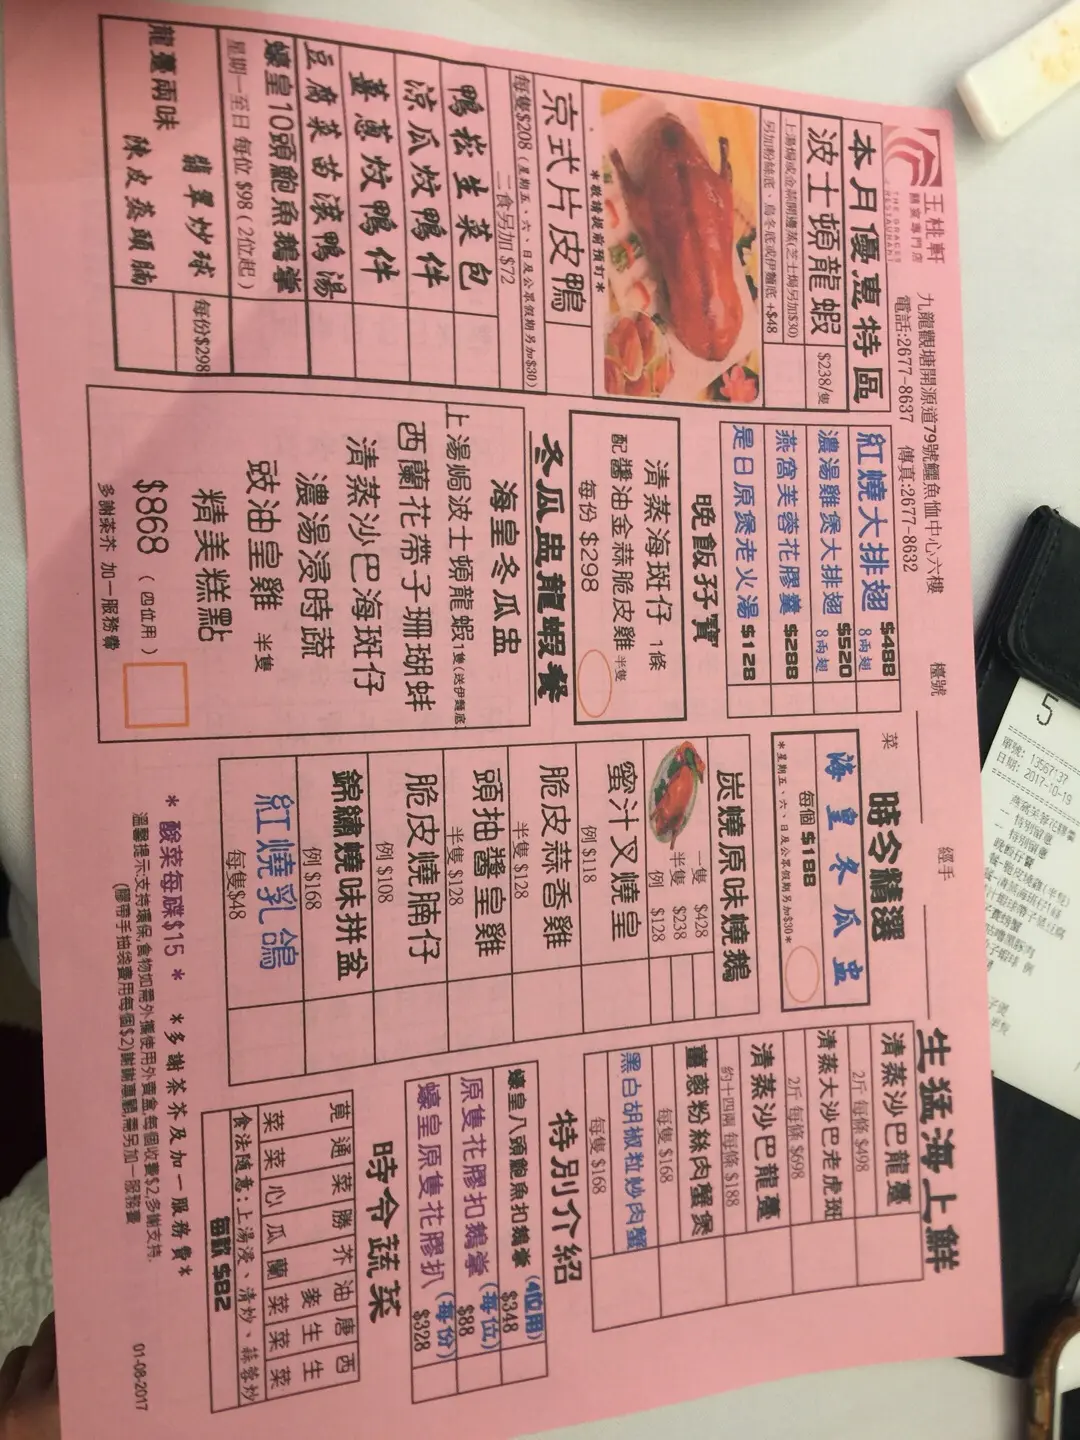 玉桃軒
囍宴專門店
THE GRACES
RESTAURANT
九龍觀塘開源道79號鱷魚恤中心六樓
電話:2677-8637 傳真:2677-8632
檯號
菜
經手
本月優惠特區
波士頓龍蝦 $238/隻
上湯焗或金蒜開邊蒸(芝士焗另加$30)
另加粉絲底、烏冬底或伊麵底 +$48
*敬請提前預訂*
京式片皮鴨
每隻$208 (星期五、六、日及公眾假期另加$30)
二食另加 $72
鴨崧生菜包
涼瓜炆鴨件
薑蔥炆鴨件
豆腐菜苗滾鴨湯
蠔皇10頭鮑魚鵝掌
星期一至日 每位 $98 (2位起)
龍躉兩味
翡翠炒球
陳皮蒸頭腩
每份$298
紅燒大排翅 $488
8兩翅
濃湯雞煲大排翅 $520
8兩翅
燕窩芙蓉花膠羹 $288
是日原煲老火湯 $128
晚飯孖寶
清蒸海斑仔 1條
配醬油金蒜脆皮雞 半隻
每份 $298
冬瓜盅龍蝦餐
海皇冬瓜盅
上湯焗波士頓龍蝦1隻(送伊麵底)
西蘭花帶子珊瑚蚌
清蒸沙巴海斑仔
濃湯浸時蔬
豉油皇雞 半隻
精美糕點
$868 (四位用)
多謝茶芥 加一服務費
時令精選
海皇冬瓜盅
每個 $188
*星期五、六、日及公眾假期另加$30*
炭燒原味燒鵝
一隻 $428
半隻 $238
例 $128
蜜汁叉燒皇
例 $118
脆皮蒜香雞
半隻 $128
頭抽醬皇雞
半隻 $128
脆皮燒腩仔
例 $108
錦繡燒味拼盆
例 $168
紅燒乳鴿
每隻$48
生猛海上鮮
清蒸沙巴龍躉
2斤 每條 $498
清蒸大沙巴老虎斑
2斤 每條 $698
清蒸沙巴龍躉
約十四兩 每條 $188
薑蔥粉絲肉蟹煲
每隻 $168
黑白胡椒粒炒肉蟹
每隻 $168
特別介紹
蠔皇八頭鮑魚扣鵝掌 (4位用) $348
原隻花膠扣鵝掌 (每位) $88
蠔皇原隻花膠扒 (每份) $328
時令蔬菜
莧菜 通菜 菜心 勝瓜 芥蘭 油麥菜 唐生菜 西生菜
食法隨意:上湯浸、清炒、蒜蓉炒
每款 $82
* 酸菜每碟$15 * *多謝茶芥及加一服務費*
溫馨提示:支持環保,食物如需外攜使用外賣盒,每個收費$2,多謝支持.
(膠帶手抽袋費用每個$2)謝謝惠顧,需另加一服務費
01-08-2017
5
單號: 13567137
日期: 2017-10-19